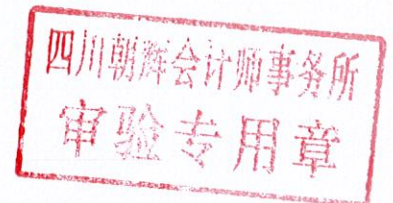 四川朝辉会计师事务所
审验专用章